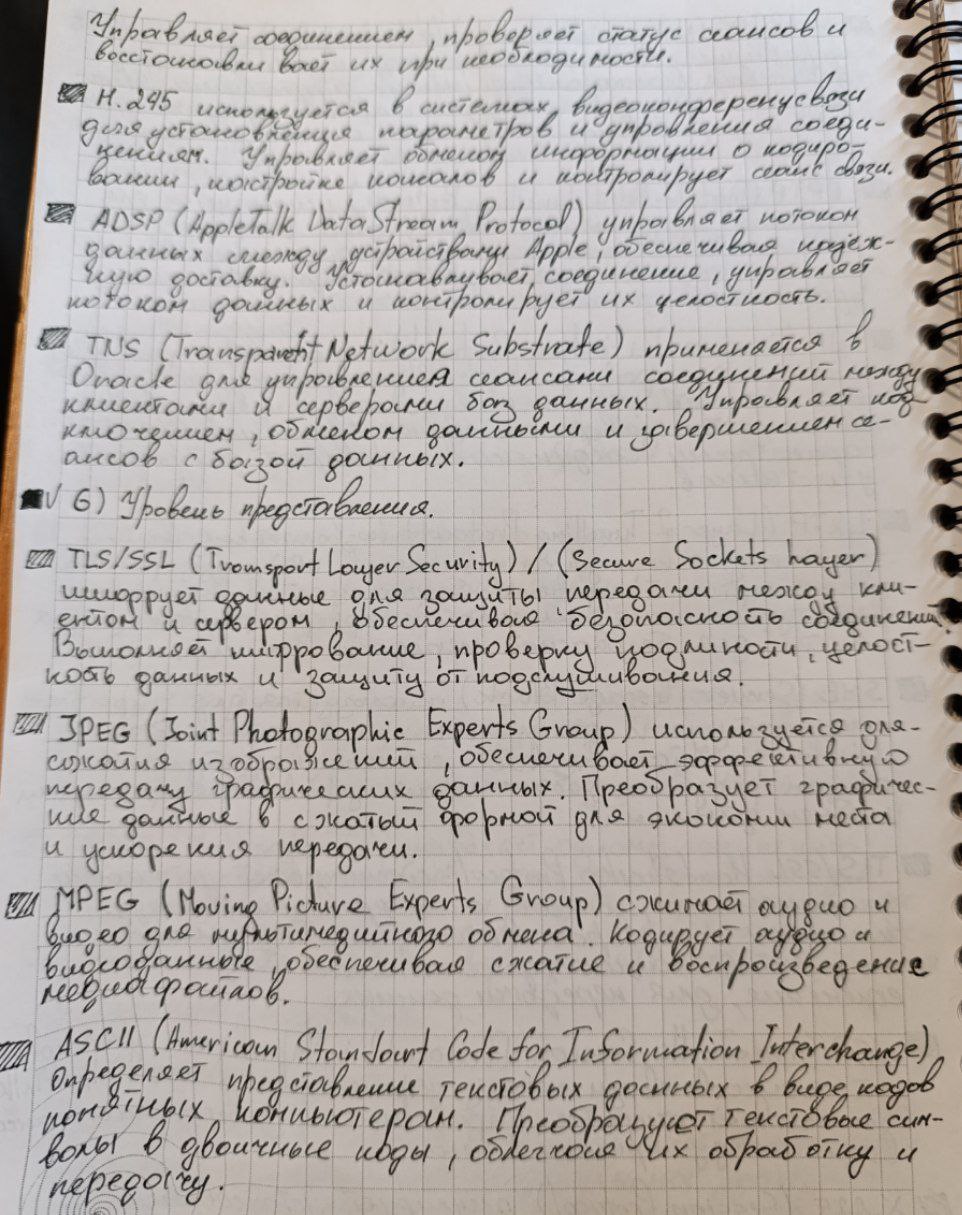 Управляет соединением, проверяет статус сеансов и
восстанавливает их при необходимости.
H.245 используется в системах видеоконференцсвязи
для установления параметров и управления соеди-
нениям. Управляет обменом информации о кодиро-
вании, настройке каналов и контролирует сеанс связи.
ADSP (AppleTalk Data Stream Protocol) управляет потоком
данных между устройствами Apple, обеспечивая надеж-
ную доставку. Устанавливает соединение, управляет
потоком данных и контролирует их целостность.
TNS (Transparent Network Substrate) применяется в
Oracle для управления сеансами соединений между
клиентами и серверами баз данных. Управляет под-
ключением, обменом данными и завершением се-
ансов с базой данных.
6) Уровень представления.
TLS/SSL (Transport Layer Security) / (Secure Sockets Layer)
шифрует данные для защиты передачи между кли-
ентом и сервером, обеспечивая безопасность соединений.
Выполняет шифрование, проверку подлиности, целост-
ность данных и защиту от подслушивания.
JPEG (Joint Photographic Experts Group) используется для-
сжатия изображений, обеспечивает эффективную
передачу графических данных. Преобразует графичес-
кие данные в сжатый формой для экономии места
и ускорения передачи.
MPEG (Moving Picture Experts Group) сжимает аудио и
видео для мультимедийного обмена. Кодирует аудио и
видеоданные, обеспечивая сжатие и воспроизведение
медиафайлов.
ASCII (American Standart Code for Information Interchange)
Определяет представление текстовых данных в виде кодов
понятных компьютерам. Преобразуют текстовые сим-
волы в двоичные коды, облегчая их обработку и
передачу.